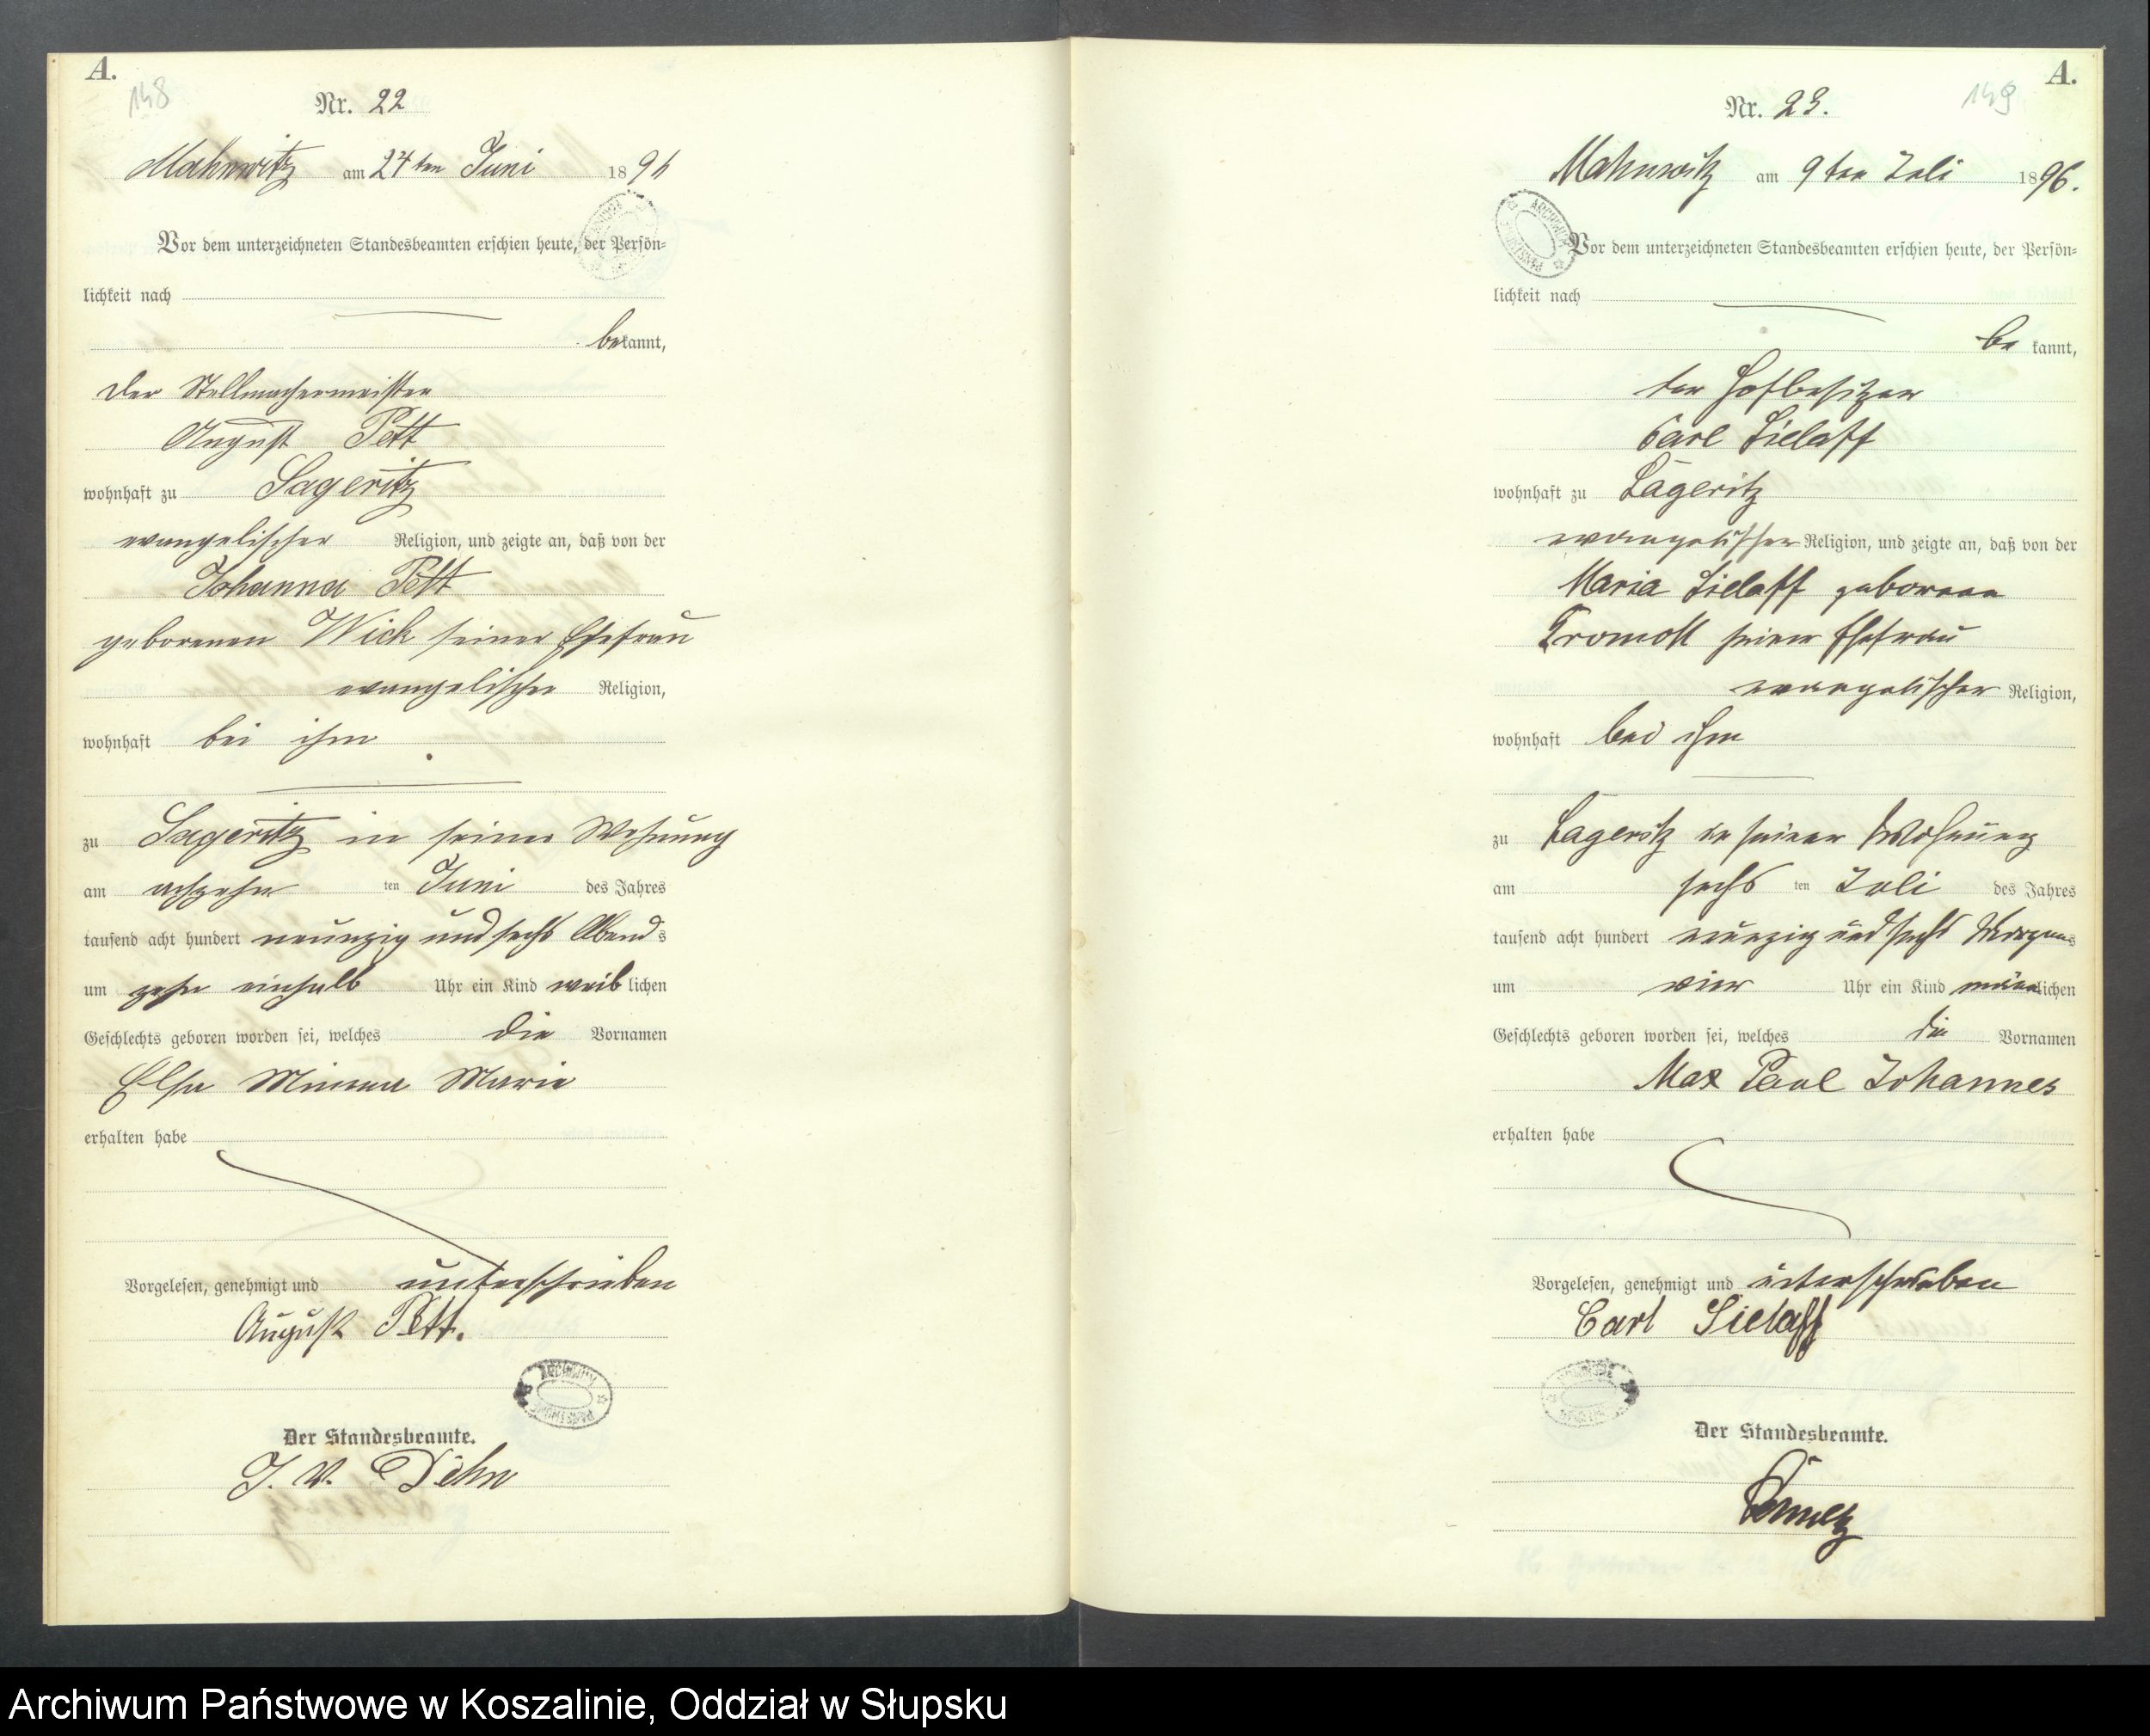 A.
148
Nr. 22
Mahnwitz am 24ten Juni 1896
Vor dem unterzeichneten Standesbeamten erschien heute, der Persön=
lichkeit nach
bekannt,
der Stellmachermeister
August Pett
wohnhaft zu Sageritz
evangelischer Religion, und zeigte an, daß von der
Johanna Pett
geborenen Wick seiner Ehefrau
evangelischer Religion,
wohnhaft bei ihm
zu Sageritz in seiner Wohnung
am achzehn ten Juni des Jahres
tausend acht hundert neunzig und sechs Abends
um zehn einhalb Uhr ein Kind weiblichen
Geschlechts geboren worden sei, welches die Vornamen
Elsa Minna Marie
erhalten habe
Vorgelesen, genehmigt und unterschrieben
August Pett.
Der Standesbeamte.
J. V. Dehn
A.
149
Nr. 23.
Mahnwitz am 9ten Juli 1896.
Vor dem unterzeichneten Standesbeamten erschien heute, der Persön=
lichkeit nach
bekannt,
der Hofbesitzer
Carl Sielaff
wohnhaft zu Sageritz
evangelischer Religion, und zeigte an, daß von der
Maria Sielaff geborene
seiner Ehefrau
evangelischer Religion,
wohnhaft bei ihm
zu Sageritz in seiner Wohnung
am sechs ten Juli des Jahres
tausend acht hundert neunzig und sechs Morgens
um vier Uhr ein Kind männlichen
Geschlechts geboren worden sei, welches die Vornamen
Max Paul Johannes
erhalten habe
Vorgelesen, genehmigt und unterschrieben
Carl Sielaff
Der Standesbeamte.
Archiwum Państwowe w Koszalinie, Oddział w Słupsku